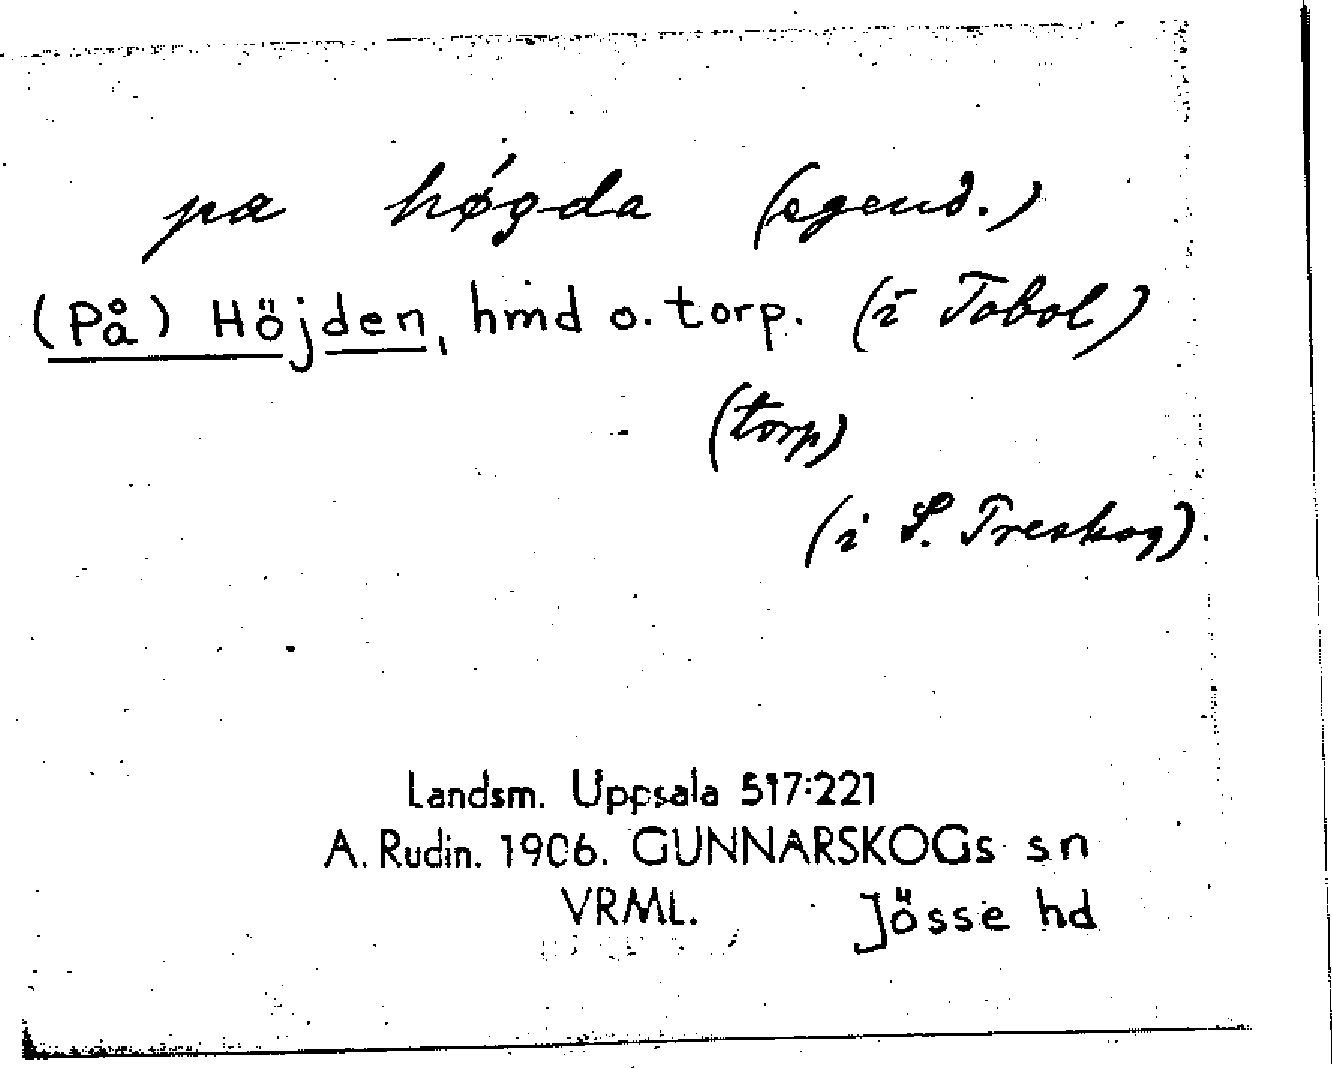 pa høgda (egend.)
(På) Höjden, hmd o. torp. (i Tobol)
(torp)
(i S. Treskog).
Landsm. Uppsala 517:221
A. Rudin. 1906. GUNNARSKOGs sn
VRML. Jösse hd